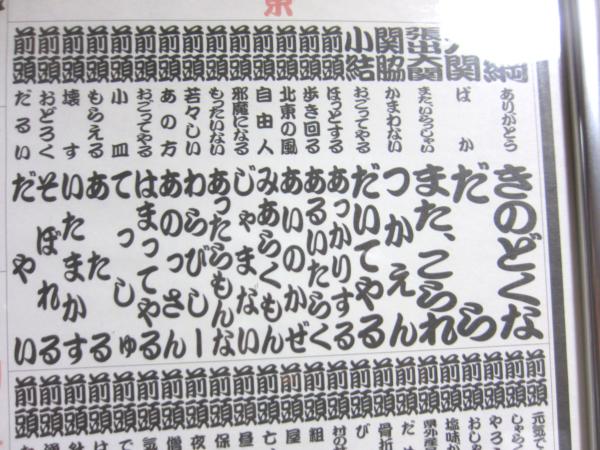 綱 ありがとう きのどくな
関 ばか だら
張出大関 またいらっしゃい また、こられ
関脇 かまわない つかえん
小結 おごってやる だいてやる
前頭 ほっとする あっかりする
前頭 歩き回る あるいたらく
前頭 北東の風 あいのかぜ
前頭 自由人 みあらくもん
前頭 邪魔になる じゃまない
前頭 もったいない あったらもんな
前頭 若々しい わらびしー
前頭 あの方 あのっさん
前頭 おごってやる はまってやる
前頭 小皿 てっしゅ
前頭 もらえる あたる
前頭 壊す いたまかする
前頭 おどろく そぼれる
前頭 だるい だやい
前頭 元気で
前頭 しゃらく
前頭 塩味が
前頭 県外産
前頭 骨折
前頭 び
前頭 村の
前頭 組
前頭 屋
前頭 七
前頭 昼
前頭 保
前頭 夜
前頭 僧
前頭 気
前頭 で
前頭 は